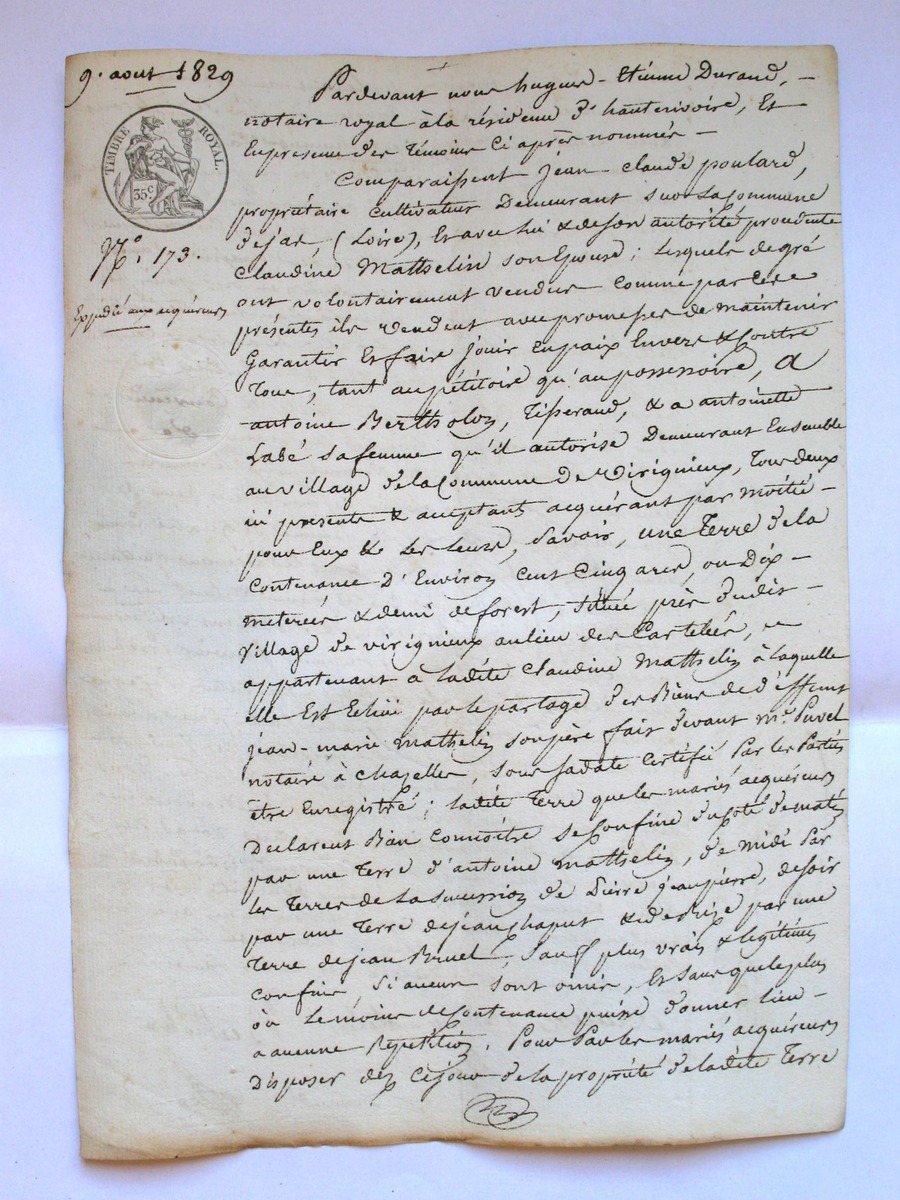 9. aout 1829
TIMBRE ROYAL.
35 c.
N.° 173.
Expédié aux acquéreurs
Pardevant nous hugues-Etienne Durand, -
notaire royal à la résidence d'hauterivoire, Et
En presence des Témoins Ci après nommés -
Comparaissent jean-claude poulard,
propriétaire cultivateur Demeurant sur la Commune
de jas (Loire), Et avec lui & de son autorité procudente
Claudine Mathelin son Epouse; Lesquels de gré
ont volontairement vendus comme par Ces
présentes ils vendent avec promesses de maintenir
Garantir Et faire jouir En paix Envers & Contre
Tous, tant au pétitoire qu'au possessoire, A
antoine Bertholon, Tisserand, & a antoinette
Labé sa femme qu'il autorise Demeurant Ensemble
au village de la Commune de Virigneux, Tous deux
ici présents & acceptants acquérant par moitié -
pour Eux & Les Leurs, Savoir, une Terre de la
Contenance D'Environ Cent Cinq ares, ou Dix -
meterées & demi de forest, située près dudit -
village de virigneux au lieu des
appartenant à ladite Claudine Mathelin à laquelle
elle Est Echue par le partage des Biens de deffunt
jean-marie mathelin son père fait devant m.e
notaire à Chazelles, sous sa date Certifié Par Les Parties
être Enregistré; Ladite Terre que les mariés acquéreurs
Declarent Bien Connoître se Confine du Coté de matin
par une Terre d'antoine mathelin, de midi Par
les Terres de La succession de Pierre jeanpierre, de soir
par une Terre de jean chaput & de bise par une
Terre de jean Bruel, Sauf plus vrais & legitimes
confins, Si aucuns sont omis, Et sans que le plus
où Le moins de Contenance puisse donner lieu -
a aucune Répétition. Pour Par les mariés acquéreurs
Disposer dez Ce jour de la propriété de ladite Terre